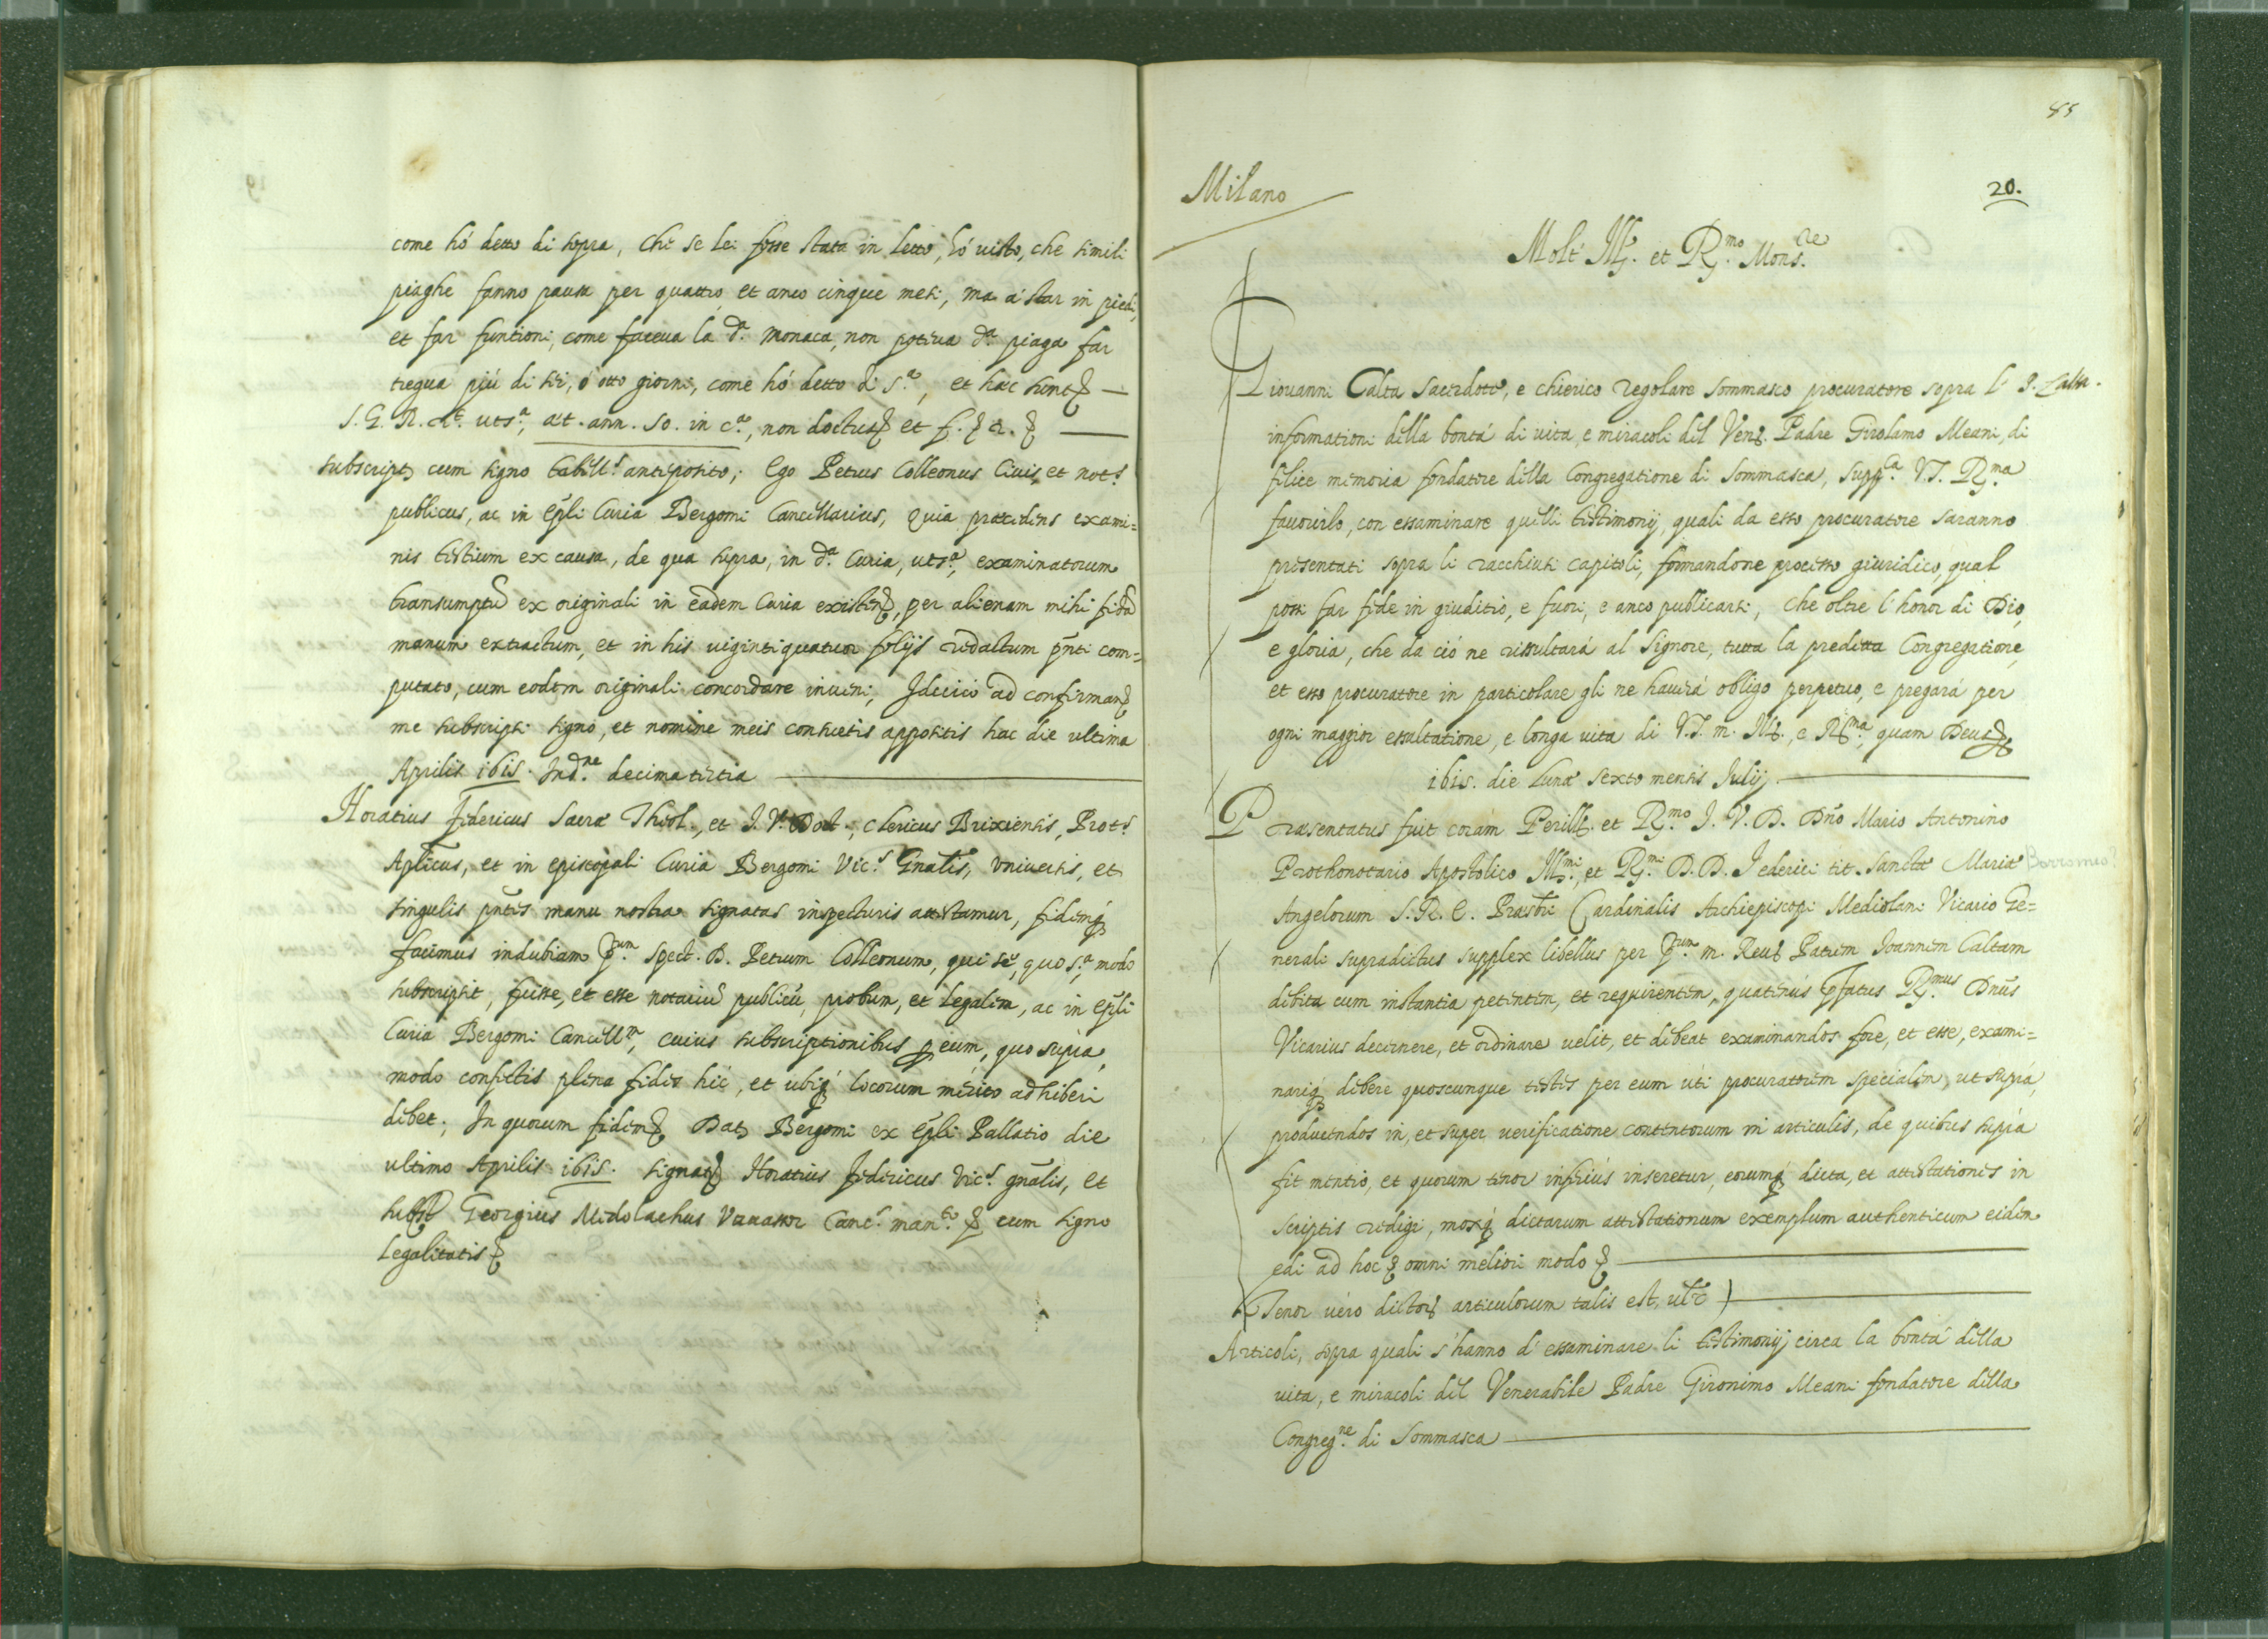 come hó detto di sopra, che se lei fosse stata in letto, hó uisto, che simili
piaghe fanno pausa per quattro, et anco cinque mesi, ma a' star in piedi,
et far funtioni, come faceua la d.ª Monaca, non poteua d.ª piaga far
tregua piú di sei, ó otto giorni, come hó detto di s.ª, et hæc sunt &
S. G. R. R.ᵗ uts.ª, æt. ann. 50. in c.ª, non doctus & et f. & r. &
subscript. cum signo tabill.ˢ anteposito; Ego Petrus Colleonus Ciuis, et not.ˢ
publicus, ac in Epli Curia Bergomi Cancellarius, quia præcedens exami=
nis testium ex causa, de qua supra, in d.ª Curia, uts.ª, examinatorum
transumptū ex originali in eadem Curia existen., per alienam mihi fidā
manum extractum, et in his uigintiquatuor folijs redactum pn̄ti com=
putato, cum eodem originali concordare inueni, Idcirco ad confirman.
me subscripsi signo, et nomine meis consuetis appositis hac die ultima
Aprilis 1615. Ind.ⁿᵉ decimatertia
Horatius Federicus Sacræ Theol., et I. V. Doct., Clericus Brixiensis, Prot.ˢ
Aplicus, et in episcopali Curia Bergomi Vic.ˢ Gn̄alis, vniuersis, et
singulis pn̄tes manu nostra signatas inspecturis attestamur, fidemq́
facimus indubiam p.ᵘᵐ Spect. D. Petrum Colleonum, qui se, quo s.ª, modo
subscripsit, fuisse, et esse notariū publicū, probum, et legalem, ac in Epli
Curia Bergomi Cancell.ᵐ, cuius subscriptionibus p eum, quo supra,
modo confectis plena fides hic, et ubiq́ locorum mérito adhiberi
debet; In quorum fidem & Dat. Bergomi ex Epli Pallatio die
ultimo Aprilis 1615. signat. Horatius Federicus Vic.ˢ gn̄alis, et
subst. Georgius Medolachus Vauassor Canc.ˢ man.ᵗᵒ & cum signo
legalitatis &
85
Milano
20.
Molt' Ill. et R.ᵐᵒ Mons.ʳᵉ
Giouanni Calta Sacerdote, e chierico regolare Sommasco procuratore sopra l' I. Calta.
informationi della bontá di uita, e miracoli del Ven. Padre Girolamo Meani, di
felice memoria fondatore della Congregatione di Sommasca, supp.ᶜᵃ V.S. R.ᵐᵃ
fauorirlo, con essaminare quelli testimonij, quali da esso procuratore saranno
presentati sopra li racchiusi capitoli, formandone processo giuridico, qual
possi far fede in giuditio, e fuori, e anco publicarsi, che oltre l'honor di Dio,
e gloria, che da ció ne rissultará al Signore, tutta la predetta Congregatione,
et esso procuratore in particolare gli ne hauerá obligo perpetuo, e pregará per
ogni maggior essaltatione, e longa uita di V.S. m. Ill., e R.ᵐᵃ, quam Deus &
1615. die Lunæ sexto mensis Julij
Præsentatus fuit corám Perill. et R.ᵐᵒ I. V. D. Dn̄o Mario Antonino
Prothonotario Apostolico Ill.ᵐⁱ, et R.ᵐⁱ D. D. Federici tit. Sanctæ Mariæ Borromeo?
Angelorum S. R. E. Præsbri Cardinalis Archiepiscopi Mediolani Vicario Ge=
nerali supradictus supplex libellus per p.ᵘᵐ m. Reu. Patrem Joannem Caltam
debita cum instantia petentem, et requirentem, quatenús p̄fatus R.ᵐᵘˢ Dn̄us
Vicarius decernere, et ordinare uelit, et debeat examinandos fore, et esse, exami=
nariq́ debere quoscunque testes per eum úti procuratorem specialem, ut suprá,
producendos in, et super uerificatione contentorum in articulis, de quibus supra
fit mentio, et quorum tenor inferiús inseretur, eorumq́ dicta, et attestationes in
scriptis redigi, moxq́ dictarum attestationum exemplum authenticum eidem
edi ad hoc & omni meliori modo &
(Tenor uéro dictor. articulorum talis est, ult.)
Articoli, sopra quali s'hanno d'essaminare li testimonij circa la bontá della
uita, e miracoli del Venerabile Padre Gironimo Meani fondatore della
Congreg.ⁿᵉ di Sommasca